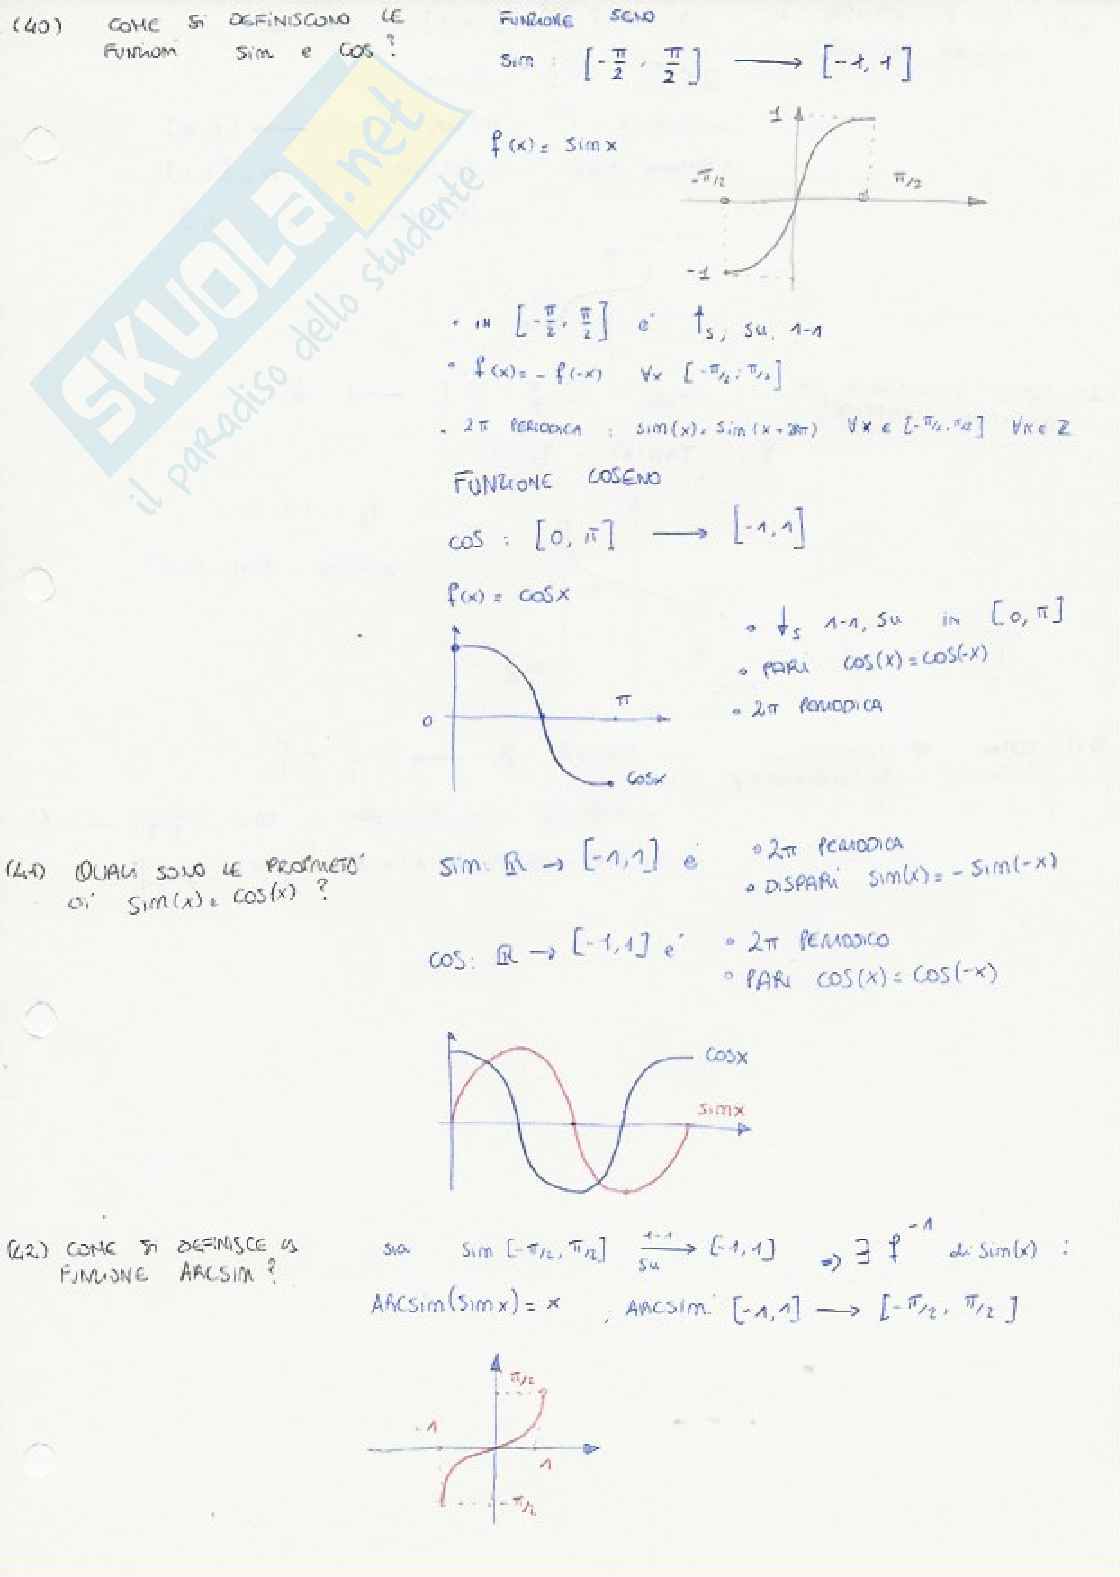 (40) COME SI DEFINISCONO LE
FUNZIONI sim e COS?
FUNZIONE SENO
sim : [-π/2, π/2] → [-1, 1]
f(x) = sim x
1
-π/2
π/2
-1
• IN [-π/2, π/2] e' ↑s, su, 1-1
• f(x) = - f(-x) ∀x [-π/2, π/2]
• 2π PERIODICA : sim(x) = sim(x+2kπ) ∀x ∈ [-π/2, π/2] ∀k ∈ Z
FUNZIONE COSENO
COS : [0, π] → [-1, 1]
f(x) = COSX
• ↓s 1-1, su in [0, π]
• PARI COS(X) = COS(-X)
• 2π PERIODICA
0
π
COSX
(41) QUALI SONO LE PROPRIETO'
di sim(x) e COS(X) ?
sim: ℝ → [-1, 1] e'
• 2π PERIODICA
• DISPARI sim(x) = - sim(-x)
COS: ℝ → [-1, 1] e'
• 2π PERIODICO
• PARI COS(X) = COS(-X)
COSX
sim x
(42) COME SI DEFINISCE LA
FUNZIONE ARCSIM ?
sia sim [-π/2, π/2] 1-1 → su [-1, 1] ⇒ ∃ f⁻¹ di sim(x) :
ARCSIM(sim x) = x , ARCSIM: [-1, 1] → [-π/2, π/2]
π/2
-1
1
-π/2
SKUOLA.net
il paradiso dello studente